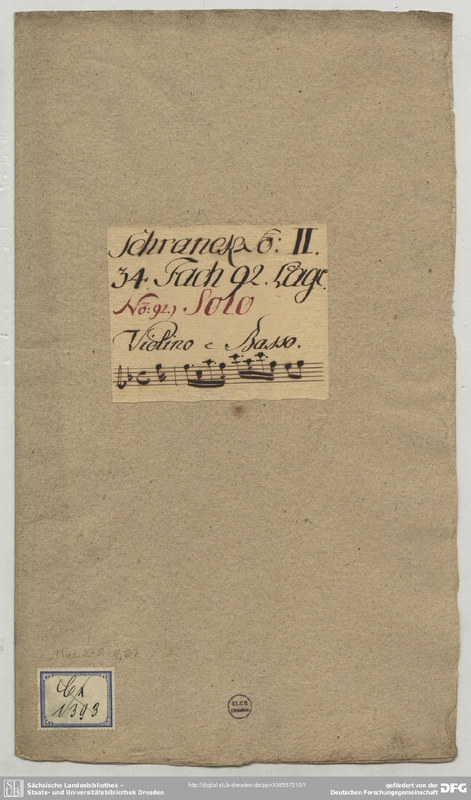 Schranck No: II.
34. Fach 92. Lage
No: 92.) Solo
Violino e Basso.
Mus. 2-R 8,82
Cx
1393
SLUB
Dresden
Sächsische Landesbibliothek –
Staats- und Universitätsbibliothek Dresden
http://digital.slub-dresden.de/ppn336557219/1
gefördert von der
Deutschen Forschungsgemeinschaft DFG